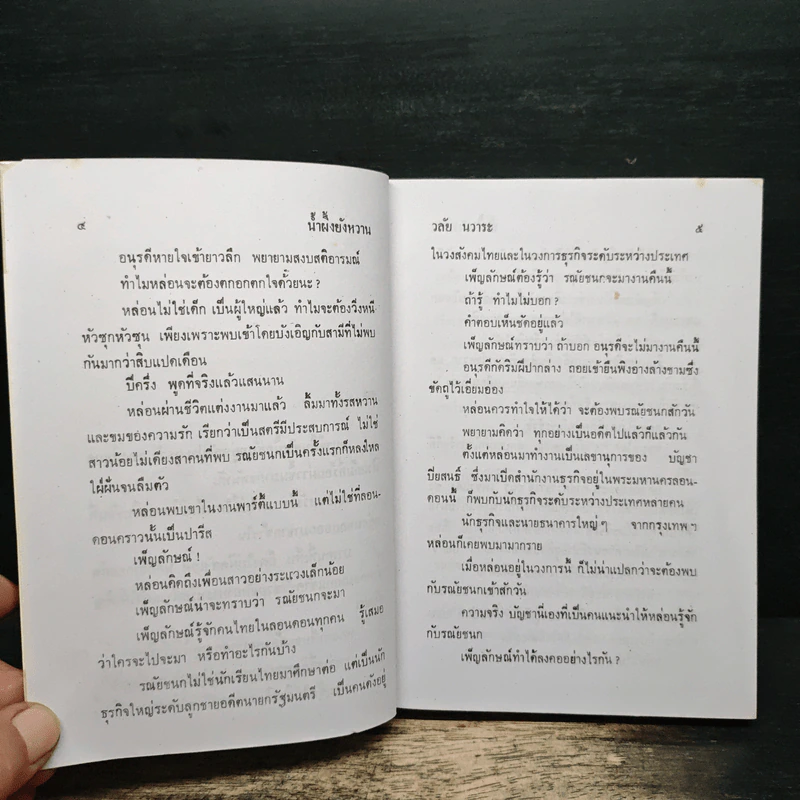 ๔ น้ำผึ้งยังหวาน
อนุรดีหายใจเข้ายาวลึก พยายามสงบสติอารมณ์
ทำไมหล่อนจะต้องตกอกตกใจด้วยนะ ?
หล่อนไม่ใช่เด็ก เป็นผู้ใหญ่แล้ว ทำไมจะต้องวิ่งหนี
หัวซุกหัวซุน เพียงเพราะพบเข้าโดยบังเอิญกับสามีที่ไม่พบ
กันมากว่าสิบแปดเดือน
ปีครึ่ง พูดที่จริงแล้วแสนนาน
หล่อนผ่านชีวิตแต่งงานมาแล้ว ลิ้มมาทั้งรสหวาน
และขมของความรัก เรียกว่าเป็นสตรีมีประสบการณ์ ไม่ใช่
สาวน้อยไม่เดียงสาคนที่พบ รณัยชนกเป็นครั้งแรกก็หลงใหล
ใฝ่ฝันจนลืมตัว
หล่อนพบเขาในงานพาร์ตี้แบบนี้ แต่ไม่ใช่ที่ลอน-
ดอนคราวนั้นเป็นปารีส
เพ็ญลักษณ์ !
หล่อนคิดถึงเพื่อนสาวอย่างระแวงเล็กน้อย
เพ็ญลักษณ์น่าจะทราบว่า รณัยชนกจะมา
เพ็ญลักษณ์รู้จักคนไทยในลอนดอนทุกคน รู้เสมอ
ว่าใครจะไปจะมา หรือทำอะไรกันบ้าง
รณัยชนกไม่ใช่นักเรียนไทยมาศึกษาต่อ แต่เป็นนัก
ธุรกิจใหญ่ระดับลูกชายอดีตนายกรัฐมนตรี เป็นคนดังอยู่
วลัย นวาระ ๕
ในวงสังคมไทยและในวงการธุรกิจระดับระหว่างประเทศ
เพ็ญลักษณ์ต้องรู้ว่า รณัยชนกจะมางานคืนนี้
ถ้ารู้ ทำไมไม่บอก ?
คำตอบเห็นชัดอยู่แล้ว
เพ็ญลักษณ์ทราบว่า ถ้าบอก อนุรดีจะไม่มางานคืนนี้
อนุรดีกัดริมฝีปากล่าง ถอยเข้ายืนพิงอ่างล้างชามซึ่ง
ขัดถูไว้เอี่ยมอ่อง
หล่อนควรทำใจให้ได้ว่า จะต้องพบรณัยชนกสักวัน
พยายามคิดว่า ทุกอย่างเป็นอดีตไปแล้วก็แล้วกัน
ตั้งแต่หล่อนมาทำงานเป็นเลขานุการของ บัญชา
ปิยสนธิ์ ซึ่งมาเปิดสำนักงานธุรกิจอยู่ในพระมหานครลอน-
ดอนนี้ ก็พบกับนักธุรกิจระดับระหว่างประเทศหลายคน
นักธุรกิจและนายธนาคารใหญ่ ๆ จากกรุงเทพฯ
หล่อนก็เคยพบมามากราย
เมื่อหล่อนอยู่ในวงการนี้ ก็ไม่น่าแปลกว่าจะต้องพบ
กับรณัยชนกเข้าสักวัน
ความจริง บัญชานี่เองที่เป็นคนแนะนำให้หล่อนรู้จัก
กับรณัยชนก
เพ็ญลักษณ์ทำได้ลงคออย่างไรกัน ?